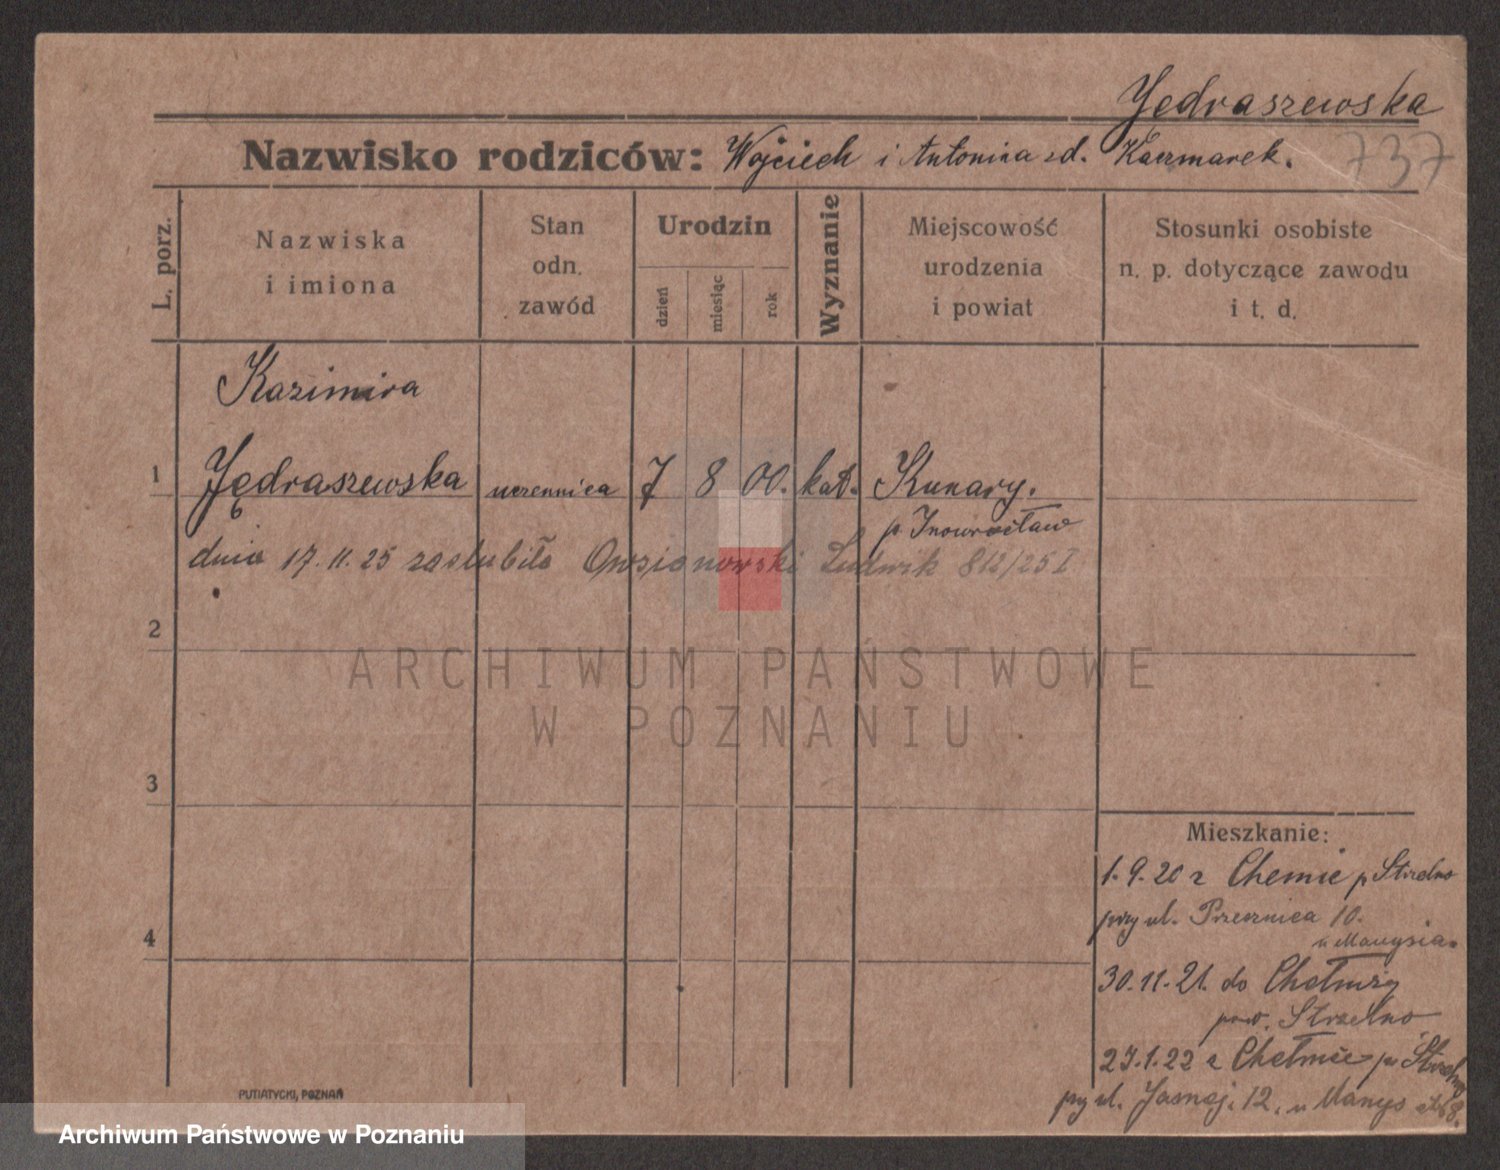 Jędraszewska
Nazwisko rodziców: Wojciech i Antonina zd. Kaczmarek.
737
L. porz.
Nazwiska
i imiona
Stan
odn.
zawód
Urodzin
dzień
miesiąc
rok
Wyznanie
Miejscowość
urodzenia
i powiat
Stosunki osobiste
n. p. dotyczące zawodu
i t. d.
Kazimira
1 Jędraszewska uczennica 7 8 00. kat. Kunary.
p Inowrocław
dnia 17.11.25 zaślubiła Owsianowski Ludwik 812/25 I
2
ARCHIWUM PAŃSTWOWE
W POZNANIU
3
Mieszkanie:
1.9.20 z Chemie p Strzelno
przy ul. 10.
u
4
30.11.21. do Chełmży
pow. Strzelno
27.1.22 z Chełmie p Strzelno
przy ul. Jasnej. 12. u
PUTIATYCKI, POZNAŃ
Archiwum Państwowe w Poznaniu